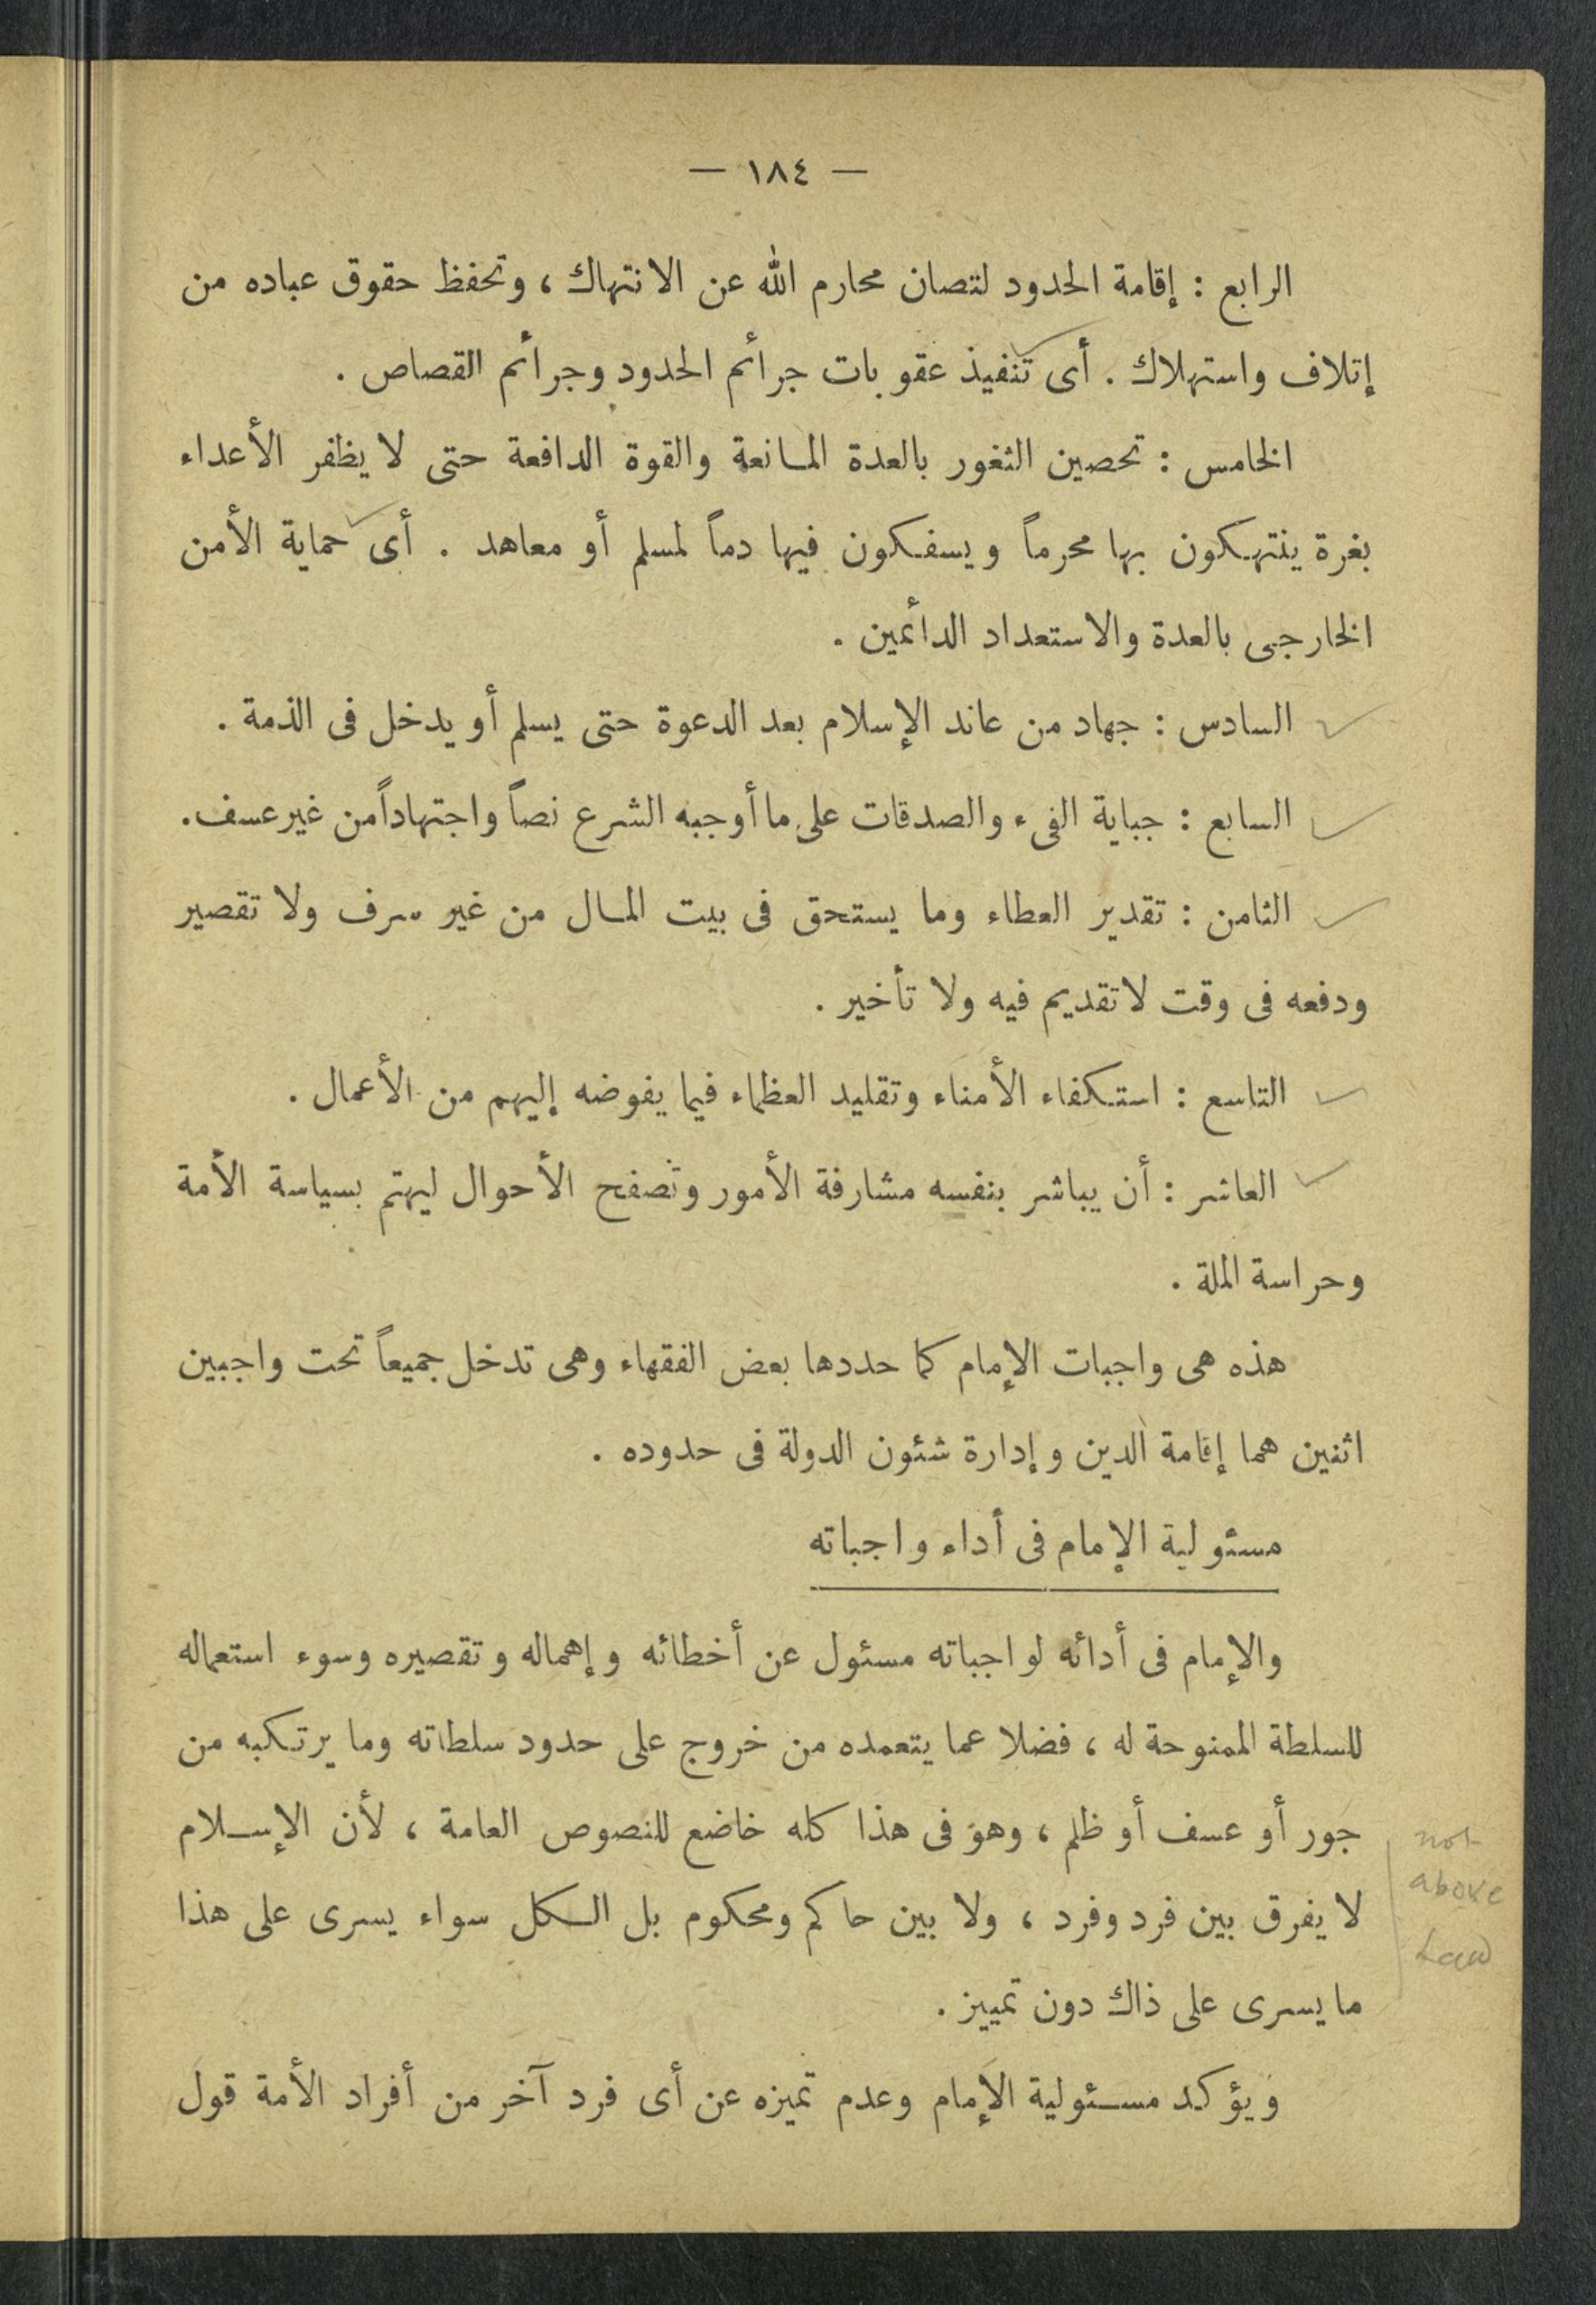 — ١٨٤ —
الرابع : إقامة الحدود لتصان محارم الله عن الانتهاك ، وتحفظ حقوق عباده من
إتلاف واستهلاك . أى تنفيذ عقوبات جرائم الحدود وجرائم القصاص .
الخامس : تحصين الثغور بالعدة المانعة والقوة الدافعة حتى لا يظفر الأعداء
بغرة ينتهكون بها محرماً ويسفكون فيها دماً لمسلم أو معاهد . أى حماية الأمن
الخارجى بالعدة والاستعداد الدائمين .
السادس : جهاد من عاند الإسلام بعد الدعوة حتى يسلم أو يدخل فى الذمة .
السابع : جباية الفىء والصدقات على ما أوجبه الشرع نصاً واجتهاداً من غير عسف .
الثامن : تقدير العطاء وما يستحق فى بيت المال من غير سرف ولا تقصير
ودفعه فى وقت لا تقديم فيه ولا تأخير .
التاسع : استكفاء الأمناء وتقليد العظماء فيما يفوضه إليهم من الأعمال .
العاشر : أن يباشر بنفسه مشارفة الأمور وتصفح الأحوال ليهتم بسياسة الأمة
وحراسة الملة .
هذه هى واجبات الإمام كما حددها بعض الفقهاء وهى تدخل جميعاً تحت واجبين
اثنين هما إقامة الدين وإدارة شئون الدولة فى حدوده .
مسئولية الإمام فى أداء واجباته
والإمام فى أدائه لواجباته مسئول عن أخطائه وإهماله وتقصيره وسوء استعماله
للسلطة الممنوحة له ، فضلا عما يتعمده من خروج على حدود سلطاته وما يرتكبه من
جور أو عسف أو ظلم ، وهو فى هذا كله خاضع للنصوص العامة ، لأن الإسلام
لا يفرق بين فرد وفرد ، ولا بين حاكم ومحكوم بل الكل سواء يسرى على هذا
ما يسرى على ذاك دون تمييز .
ويؤكد مسئولية الإمام وعدم تميزه عن أى فرد آخر من أفراد الأمة قول
not
above
Law